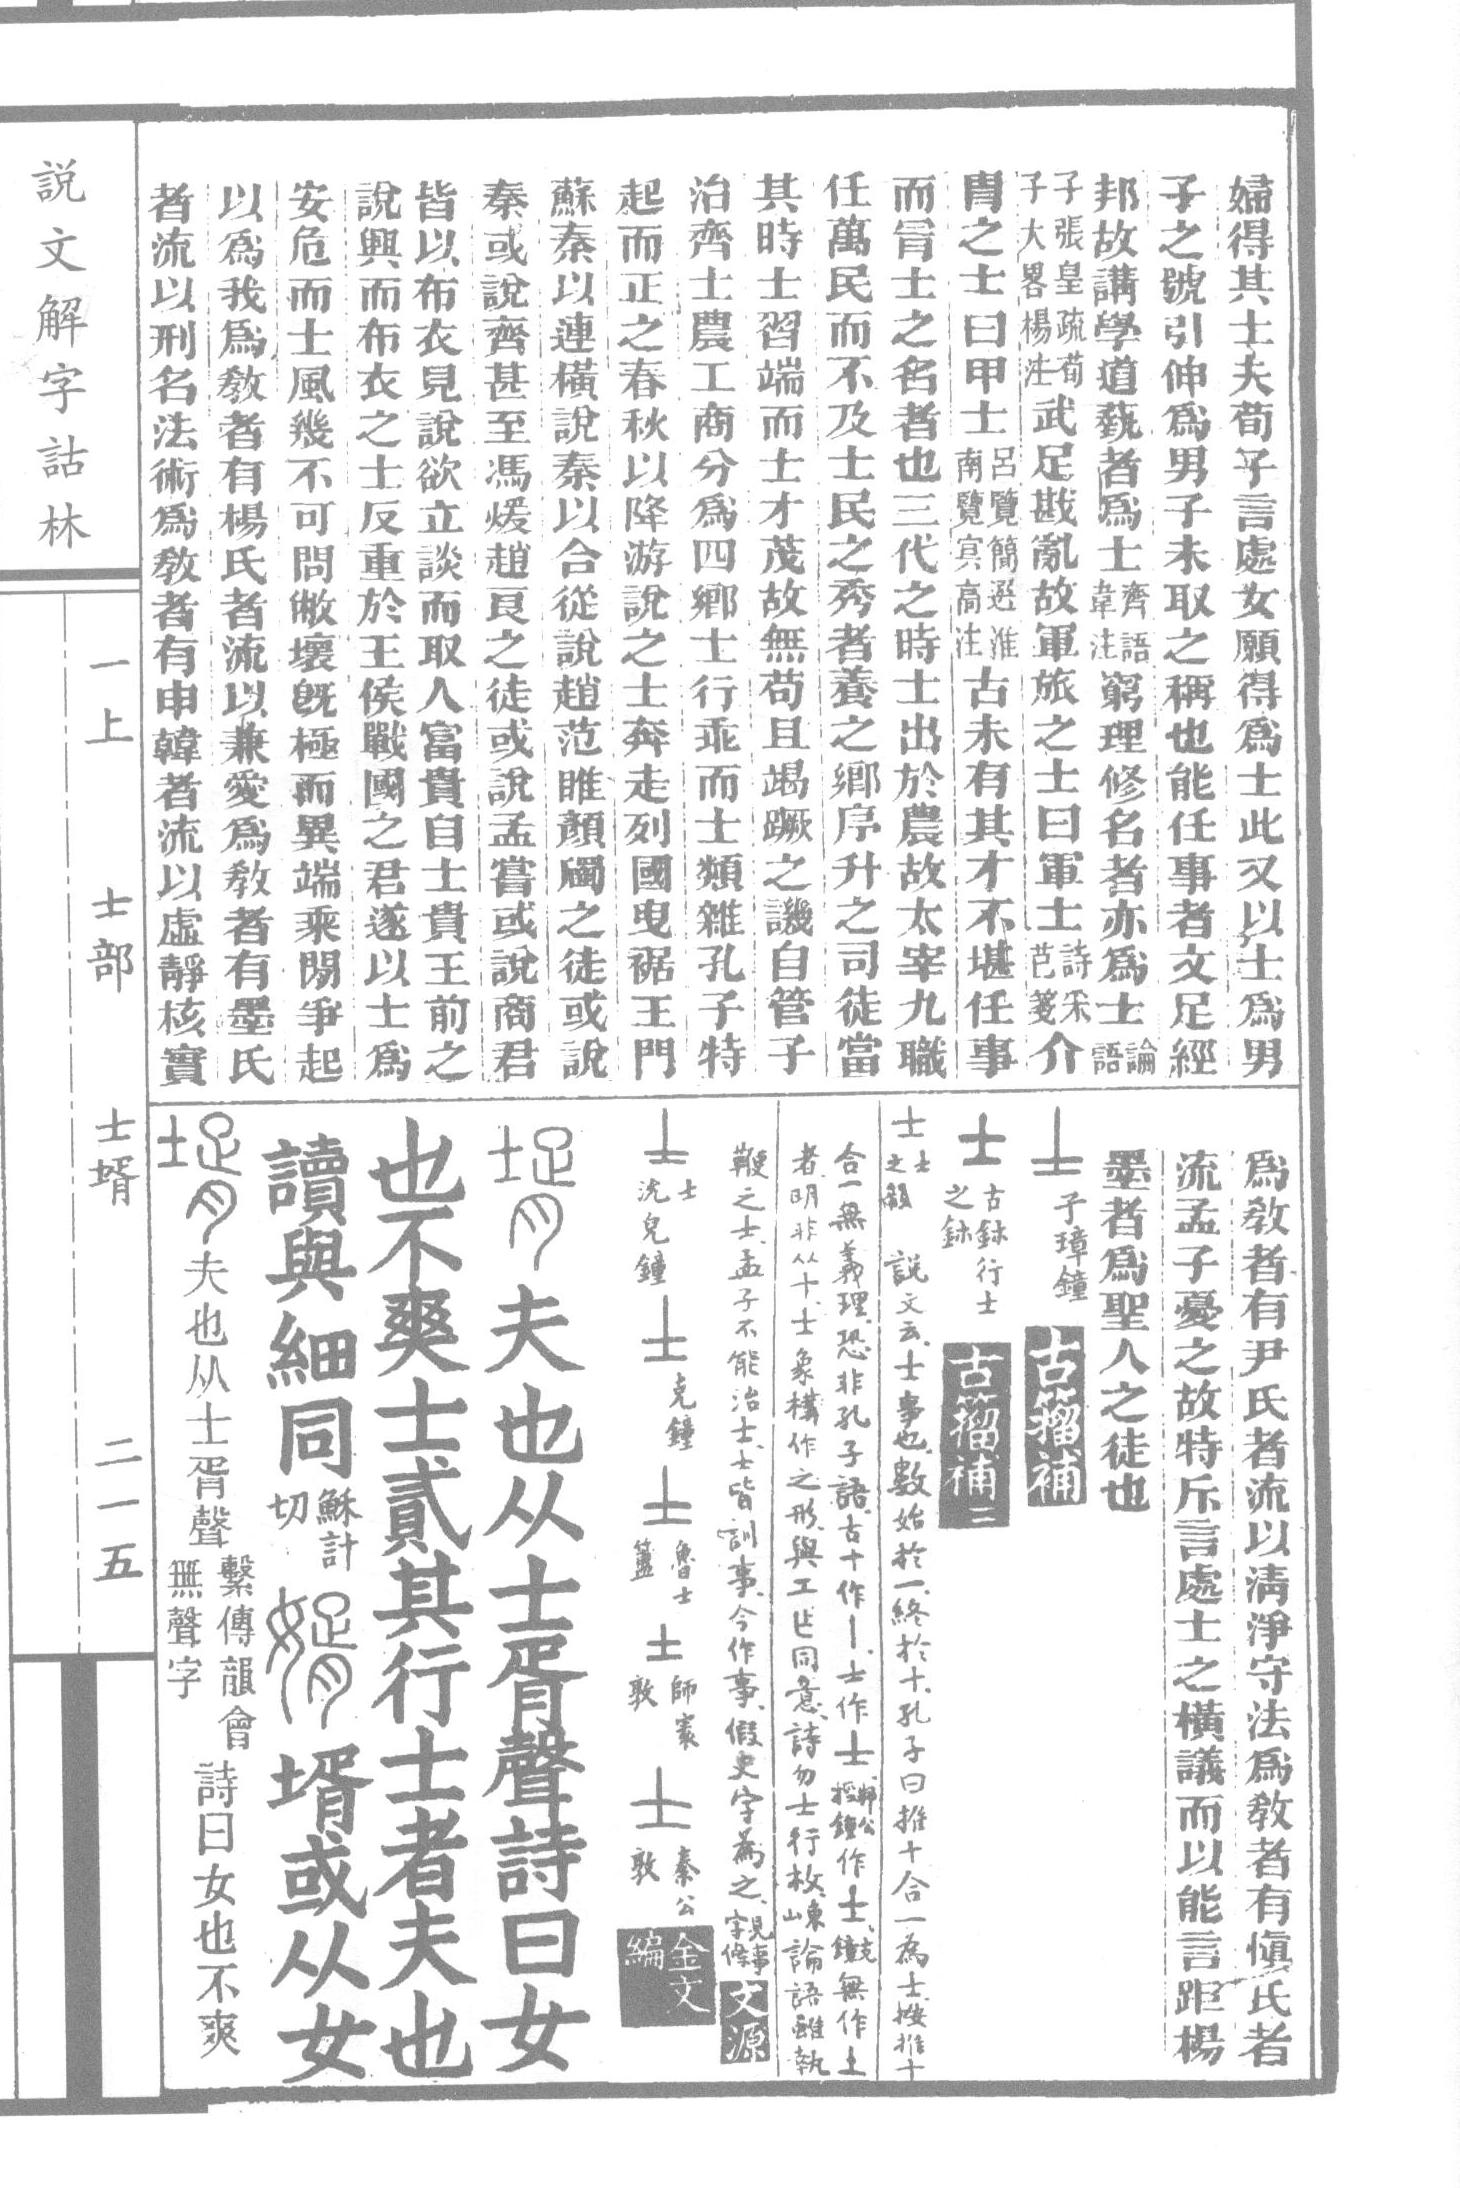 婦得其士夫荀子言處女願得爲士此又以士爲男
子之號引伸爲男子未取之稱也能任事者文足經
邦故講學道藝者爲士齊語韋注窮理修名者亦爲士論語
子張皇疏荀子大畧楊注武足戡亂故軍旅之士曰軍士詩采芑箋介
冑之士曰甲士呂覽簡選淮南覽冥高注古未有其才不堪任事
而冒士之名者也三代之時士出於農故太宰九職
任萬民而不及士民之秀者養之鄉序升之司徒當
其時士習端而士才茂故無苟且竭蹶之譏自管子
治齊士農工商分爲四鄉士行乖而士類雜孔子特
起而正之春秋以降游說之士奔走列國曳裾王門
蘇秦以連橫說秦以合從說趙范睢顏斶之徒或說
秦或說齊甚至馮煖趙良之徒或說孟嘗或說商君
皆以布衣見說欲立談而取人富貴自士貴王前之
說興而布衣之士反重於王侯戰國之君遂以士爲
安危而士風幾不可問敝壞旣極而異端乘閒爭起
以爲我爲教者有楊氏者流以兼愛爲教者有墨氏
者流以刑名法術爲教者有申韓者流以虛靜核實
爲教者有尹氏者流以淸淨守法爲教者有愼氏者
流孟子憂之故特斥言處士之橫議而以能言距楊
墨者爲聖人之徒也
士子璋鐘古籀補
士古鉢行士之鉢古籀補二
士士之顧 說文云士事也數始於一終於十孔子曰推十合一為士按推十
合一無義理恐非孔子語古十作丨士作士邾公牼鐘作士克鐘無作丄
者明非从十士象構作之形與工乍同意詩勿士行枚東山論語雖執
鞭之士孟子不能治士士皆訓事今作事假史字為之見事字條文源
士士沇兒鐘士克鐘士魯士簠士師㝨敦士秦公敦金文編
壻夫也从士胥聲詩曰女
也不爽士貳其行士者夫也
讀與細同穌計切婿壻或从女
壻夫也从士胥聲繫傳韻會無聲字詩曰女也不爽
說文解字詁林
一上
士部
士壻
二一五